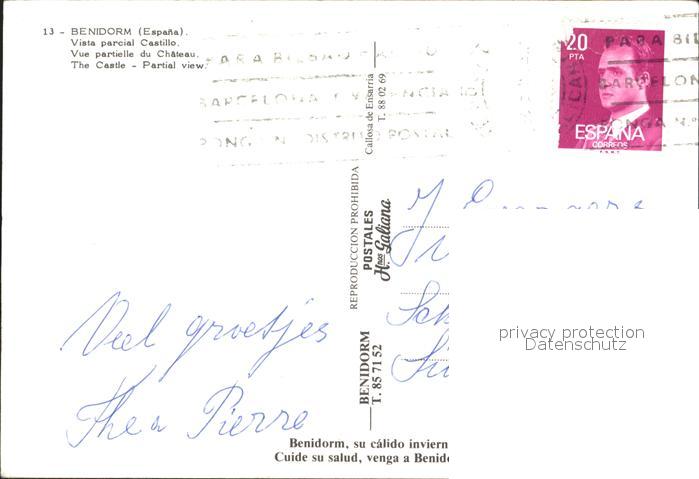 13 - BENIDORM (España).
Vista parcial Castillo.
Vue partielle du Château.
The Castle - Partial view.
PARA BILBAO
BARCELONA Y VALENCIA
PONGA N. DISTRITO POSTAL
20
PTA
ESPAÑA
CORREOS
PARA BIL
BARCELON
PONGA N.º
Callosa de Ensarria
T. 88 02 69
REPRODUCCION PROHIBIDA
POSTALES
Hnos Galiana
BENIDORM
T. 85 71 52
Veel groetjes
Thea Pierre
privacy protection
Datenschutz
Benidorm, su cálido inviern
Cuide su salud, venga a Benid